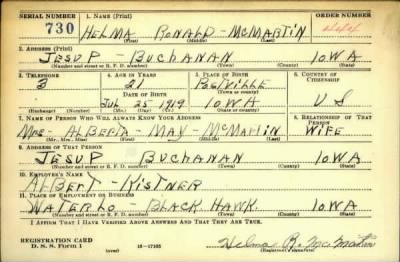 SERIAL NUMBER 1. NAME (Print) ORDER NUMBER
730 HELMA RONALD - McMARTIN
(First) (Middle) (Last)
2. ADDRESS (Print)
JESUP - BUCHANAN IOWA
(Number and street or R. F. D. number) (Town) (County) (State)
3. TELEPHONE 4. AGE IN YEARS 5. PLACE OF BIRTH 6. COUNTRY OF CITIZENSHIP
3 21 POSTVILLE
DATE OF BIRTH (Town or county)
JUL 25 1919 IOWA U S
(Exchange) (Number) (Mo.) (Day) (Yr.) (State or country)
7. NAME OF PERSON WHO WILL ALWAYS KNOW YOUR ADDRESS 8. RELATIONSHIP OF THAT PERSON
MRS - ALBERTA - MAY - McMARTIN WIFE
(Mr., Mrs., Miss) (First) (Middle) (Last)
9. ADDRESS OF THAT PERSON
JESUP BUCHANAN IOWA
(Number and street or R. F. D. number) (Town) (County) (State)
10. EMPLOYER'S NAME
ALBERT - KISTNER
11. PLACE OF EMPLOYMENT OR BUSINESS
WATERLOO - BLACK HAWK IOWA
(Number and street or R. F. D. number) (Town) (County) (State)
I AFFIRM THAT I HAVE VERIFIED ABOVE ANSWERS AND THAT THEY ARE TRUE.
REGISTRATION CARD
D. S. S. FORM 1 (over) 16-17105 Helma R. McMartin